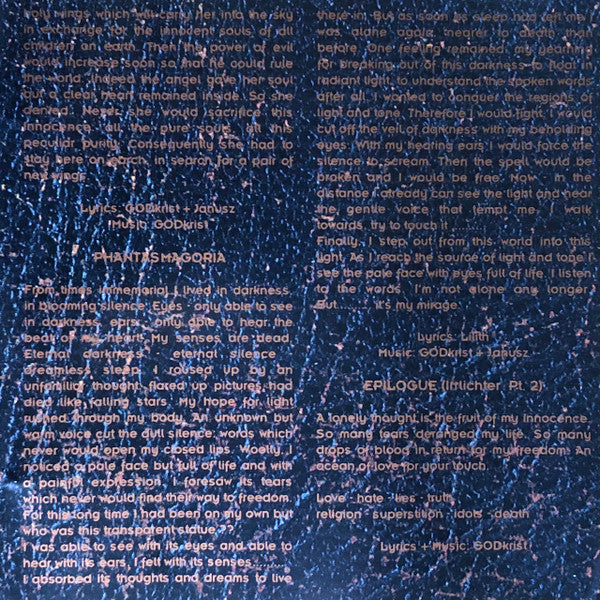 holy wings which will carry her into the sky
in exchange for the innocent souls of all
children an earth. Then the power of evil
would increase soon so that he could rule
the world. Indeed the angel gave her soul
but a clear heart remained inside. So she
denied. Never she would sacrifice this
innocence, all the pure souls, all this
peculiar purity. Consequently she had to
stay here on earch, in search for a pair of
new wings.
Lyrics: GODkrist + Janusz
Music: GODkrist
PHANTASMAGORIA
From times immemorial I lived in darkness,
in blooming silence. Eyes - only able to see
in darkness, ears - only able to hear the
beat of my heart. My senses are dead.
Eternal darkness - eternal silence -
dreamless sleep. I roused up by an
unfamiliar thought, flared up pictures had
died like falling stars. My hope for light
rushed through my body. An unknown but
warm voice cut the dull silence: words which
never would open my closed lips. Woelly, I
noticed a pale face but full of life and with
a painful expression. I foresaw its tears
which never would find their way to freedom.
For this long time I had been on my own but
who was this transparent statue ??
I was able to see with its eyes and able to
hear with its ears, I felt with its senses.........
I absorbed its thoughts and dreams to live
there in. But as soon as sleep had left me I
was alone again, nearer to death than
before. One feeling remained: my yearning
for breaking out of this darkness to float in
radiant light, to understand the spoken words
after all. I wanted to conquer the regions of
light and tone. Therefore I would fight. I would
cut off the veil of darkness with my beholding
eyes. With my hearing ears I would force the
silence to scream. Then the spell would be
broken and I would be free. Now - in the
distance I already can see the light and hear
the gentle voice that tempt me. I walk
towards, try to touch it........
Finally, I step out from this world into this
light. As I reach the source of light and tone I
see the pale face with eyes full of life. I listen
to the words. I'm not alone any longer.
But ........ it's my mirage.
Lyrics: Lilith
Music: GODkrist + Janusz
EPILOGUE (Irrlichter Pt. 2)
A lonely thought is the fruit of my innocence.
So many tears deranged my life. So many
drops of blood in return for my freedom. An
ocean of love for your touch.
Love - hate - lies - truth
religion - superstition - idols - death
Lyrics + Music: GODkrist